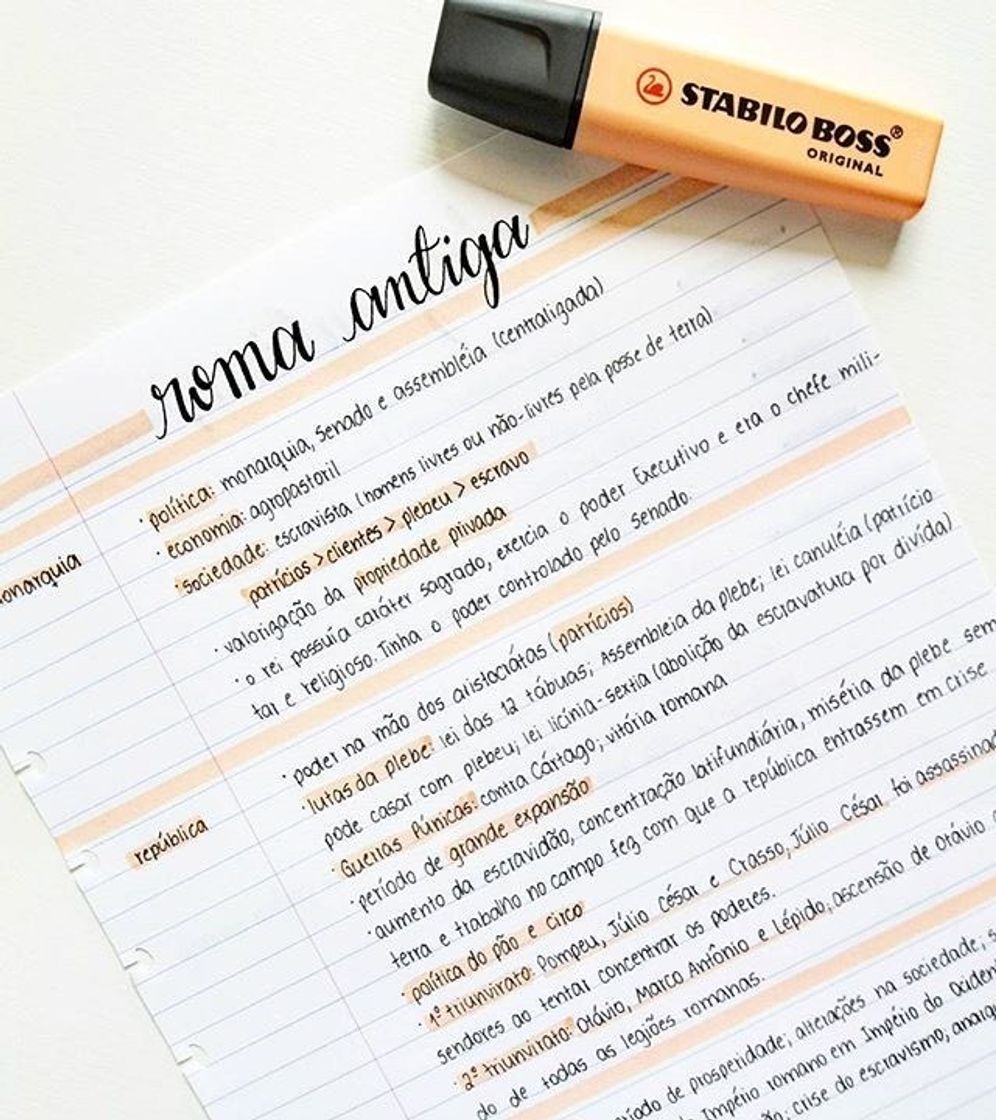 STABILO BOSS®
ORIGINAL
roma antiga
· política: monarquia, senado e assembléia (centralizada)
· economia: agropastoril
· sociedade: escravista (homens livres ou não-livres pela posse de terra)
patrícios > clientes > plebeu > escravo
onarquia
· valorização da propriedade privada
· o rei possuía caráter sagrado, exercia o poder Executivo e era o chefe mili-
tar e religioso. Tinha o poder controlado pelo Senado.
· poder na mão dos aristocrátas (patrícios)
· lutas da plebe: lei das 12 tábuas; Assembleia da plebe; lei canuléia (patrício
pode casar com plebeu; lei licínia-sextia (abolição da escravatura por divída)
· Guerras Púnicas: contra Cártago; vitória romana
república
· período de grande expansão
· aumento da escravidão, concentração latifundiária, miséria da plebe sem
terra e trabalho no campo fez com que a república entrassem em crise
· política do pão e circo
· 1º triunvirato: Pompeu, Júlio César e Crasso, Júlio César foi assassinad
sendores ao tentar concentrar os poderes.
· 2º triunvirato: Otávio, Marco Antônio e Lépido, ascensão de Otávio
do de todas as legiões romanas.
ríodo de prosperidade; alterações na sociedade;
Império romano em Império do Ocident
crise do escravismo, anarq